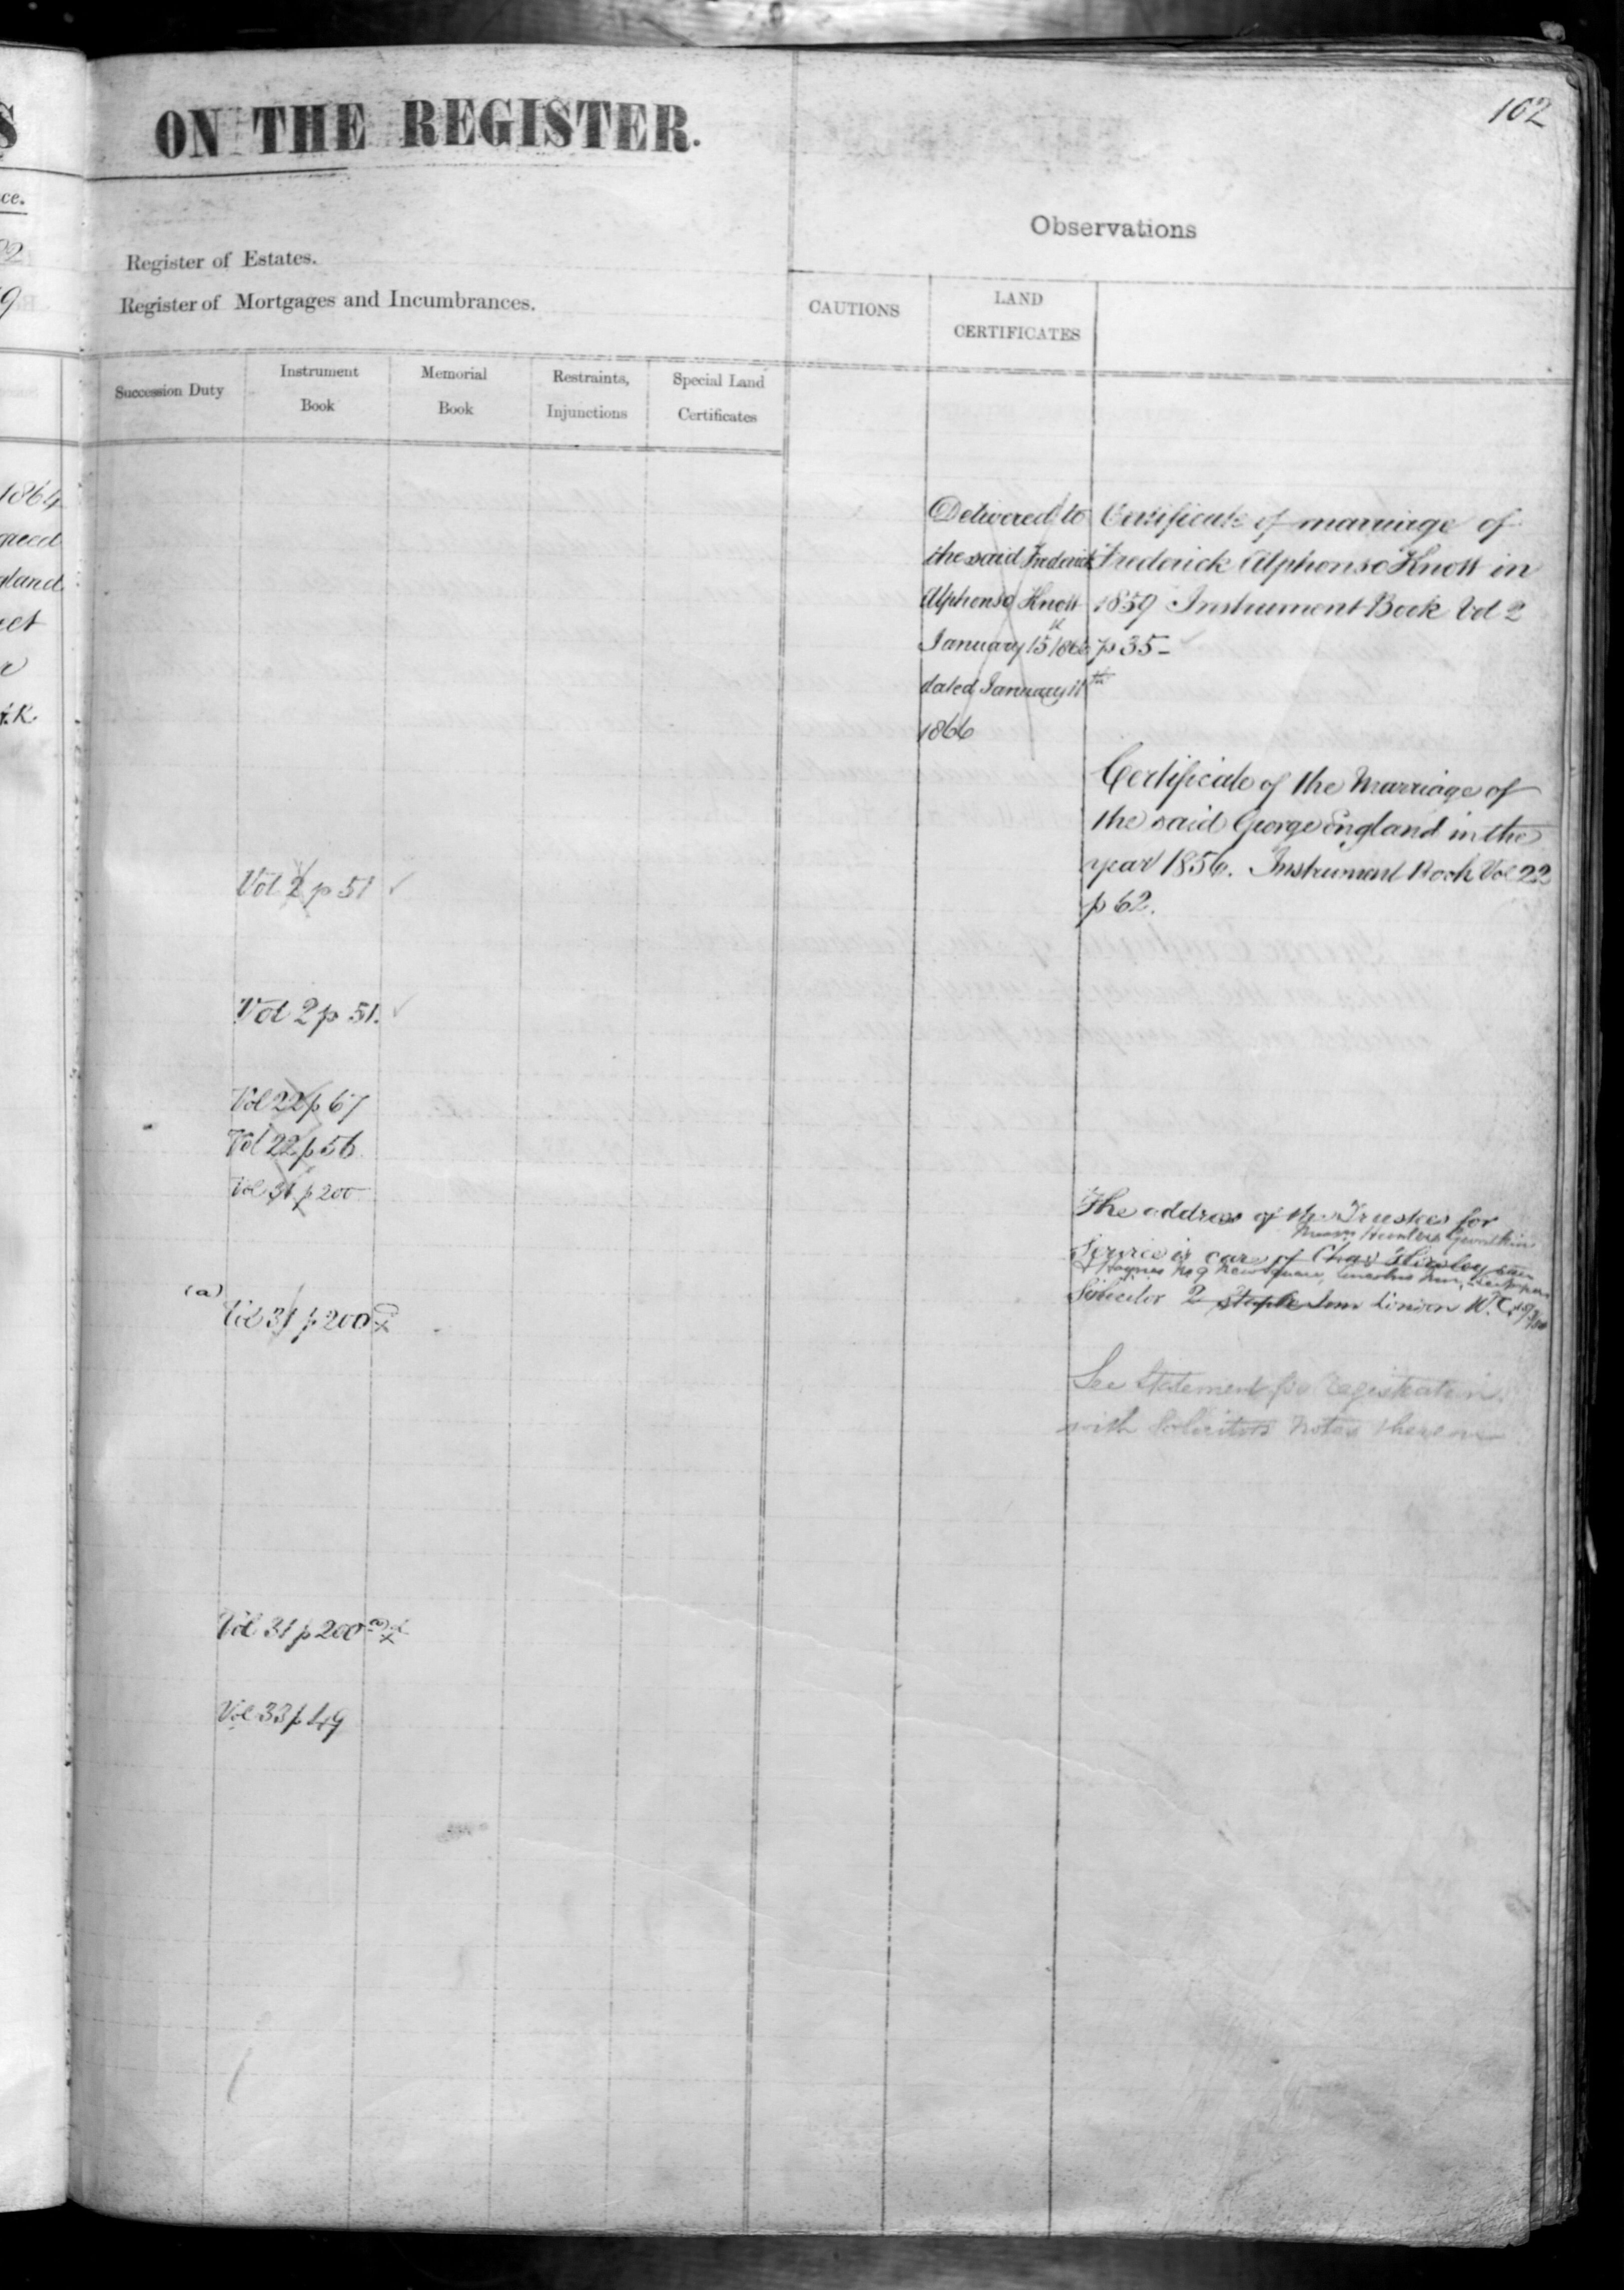 162
S
ON THE REGISTER.
ce.
Observations
Register of Estates.
Register of Mortgages and Incumbrances.
CAUTIONS
LAND
CERTIFICATES
Succession Duty
Instrument
Book
Memorial
Book
Restraints,
Injunctions
Special Land
Certificates
1864
gland
Delivered to
the said Frederick
Alphonso Knott
January 15 1866
dated January 11th
1866
Certificate of marriage of
Frederick Alphonso Knott in
1859 Instrument Book Vol 2
p 35 -
Certificate of the Marriage of
the said George England in the
year 1856. Instrument Book Vol 22
p 62.
Vol 2 p 51
Vol 2 p 51.
Vol 22 p 67
Vol 22 p 56
Vol 31 p 200
The address of the Trustees for
Messrs Hunters Gwatkin
Service is care of Chas
& Haynes No 9 New Square, Lincolns Inn,
Solicitor 2 Staple Inn London W.C.
(a)
Vol 31 p 200
See Statement for registration
with Solicitors notes thereon
Vol 31 p 200
Vol 33 p 49